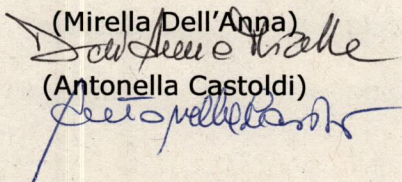 (Mirella Dell'Anna)
Dell'Anna Mirella
(Antonella Castoldi)
Antonella Castoldi